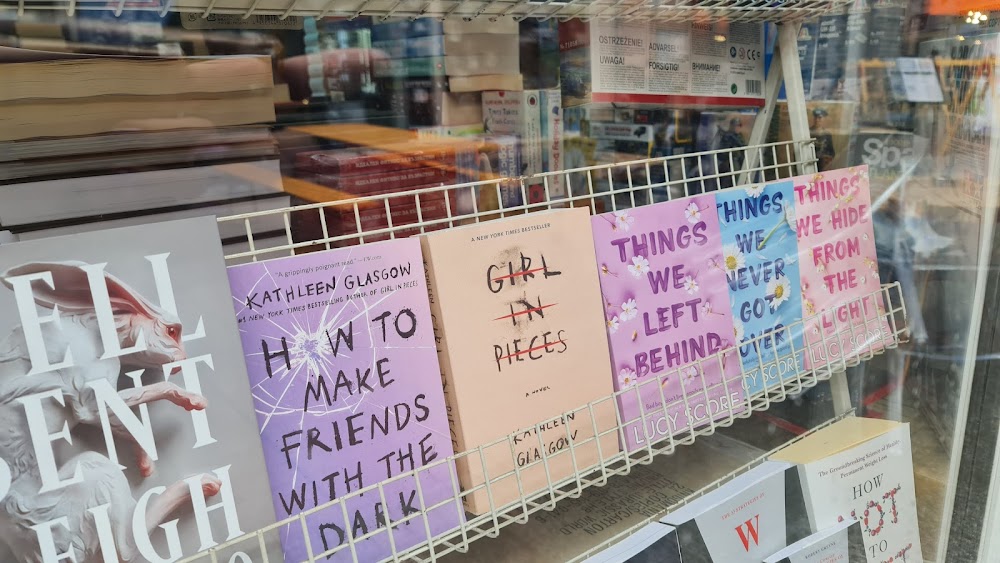 OSTRZEŻENIE!
UWAGA!
ADVARSEL!
FORSIGTIG!
ВНИМАНИЕ!
CE
Sp
ELL
BENT
LEIGH
"A grippingly poignant read."
KATHLEEN GLASGOW
#1 NEW YORK TIMES BESTSELLING AUTHOR OF GIRL IN PIECES
HOW TO
MAKE
FRIENDS
WITH THE
DARK
A NEW YORK TIMES BESTSELLER
GIRL
IN
PIECES
A NOVEL
KATHLEEN
GLASGOW
THINGS
WE
LEFT
BEHIND
LUCY SCORE
THINGS
WE
NEVER
GOT
OVER
CY SCORE
THINGS
WE HIDE
FROM
THE
LIGHT
LUCY SCORE
W
The Groundbreaking Science of
Permanent Weight Loss
HOW
NOT
TO